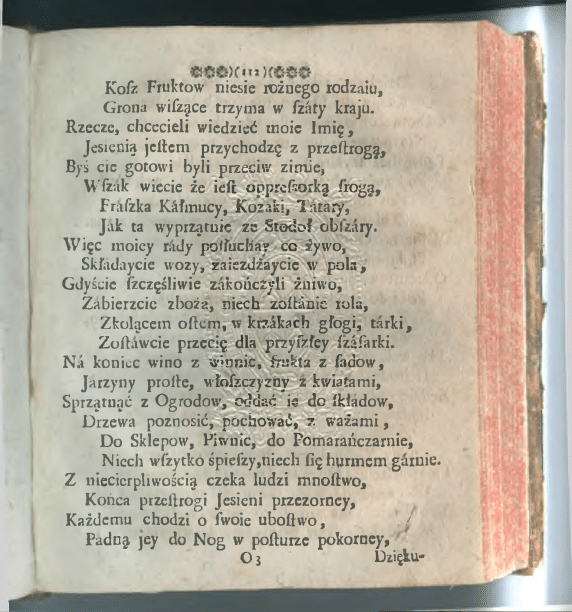 )(112)(
Kosz Fruktow niesie rożnego rodzaiu,
Grona wiſzące trzyma w ſzáty kraju.
Rzecze, chcecieli wiedzieć moie Imię,
Jesienią jeſtem przychodzę z przeſtrogą,
Byś cie gotowi byli przeciw zimie,
Wſzák wiecie że ieſt oppreſſorką ſrogą,
Fráſzka Káłmucy, Kozáki, Tátary,
Ják ta wyprzątnie ze Stodoł obſzáry.
Więc moiey rády poſłuchay co żywo,
Składaycie wozy, zaiezdżaycie w pola,
Gdyście ſzczęśliwie zákończyli żniwo,
Zábierzcie zboża, niech zoſtánie rola,
Zkolącem oſtem, w krzákach głogi, tárki,
Zoſtáwcie przecię dla przyſzłey ſzáſarki.
Ná koniec wino z winnic, frukta z ſadow,
Járzyny proſte, włoſzczyzny z kwiatami,
Sprzątnąć z Ogrodow, oddáć ie do ſkładow,
Drzewa poznosić, pochować, z ważami,
Do Sklepow, Piwnic, do Pomarańczarnie,
Niech wſzytko śpieſzy, niech ſię hurmem gárnie.
Z niecierpliwością czeka ludzi mnoſtwo,
Końca przeſtrogi Jesieni przezorney,
Każdemu chodzi o ſwoie uboſtwo,
Padną jey do Nog w poſturze pokorney,
O3 Dzięku-